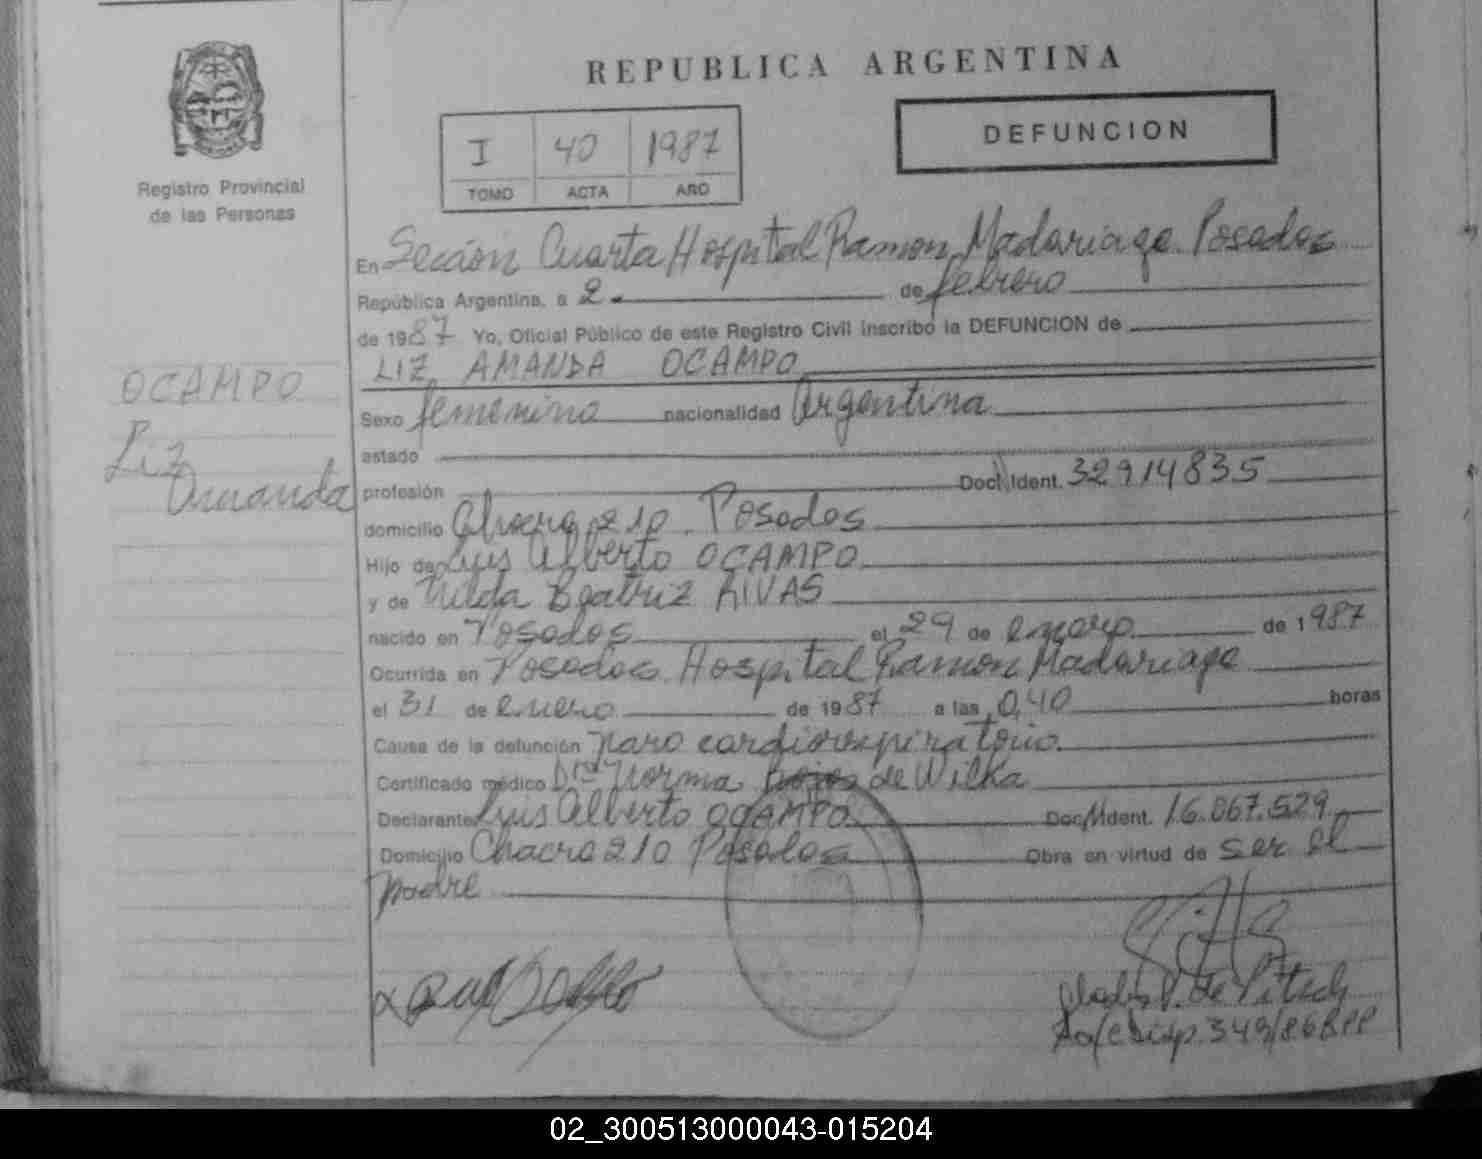 REPUBLICA ARGENTINA
DEFUNCION
I 40 1987
TOMO ACTA AÑO
Registro Provincial
de las Personas
En Sección Cuarta Hospital Ramon Madariaga Posadas
República Argentina, a 2 de febrero
de 1987 Yo, Oficial Público de este Registro Civil inscribo la DEFUNCION de
LIZ AMANDA OCAMPO
OCAMPO
Liz
Amanda
Sexo femenino nacionalidad Argentina
estado
profesión Doc. Ident. 32914835
domicilio Chacra 210 Posadas
Hijo de Luis Alberto OCAMPO
y de Nilda Beatriz RIVAS
nacido en Posadas el 29 de enero de 1987
Ocurrida en Posadas Hospital Ramon Madariaga
el 31 de enero de 1987 a las 0,40 horas
Causa de la defunción paro cardiorespiratorio
Certificado médico Dra Norma Rojas de Wilka
Declarante Luis Alberto OCAMPO Doc. Ident. 16.067.529
Domicilio Chacra 210 Posadas Obra en virtud de ser el
padre
de
349/86
02_300513000043-015204